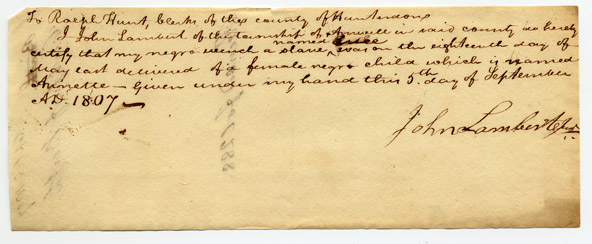 To Ralph Hunt, Clerk of the county of Hunterdon
I John Lambert of the township of Amwell in said county do hereby
named
certify that my negro wench a slave, was on the eighteenth day of
May last delivered of a female negro child which is named
Annette — Given under my hand this 5th day of September
AD. 1807 —
John Lambert